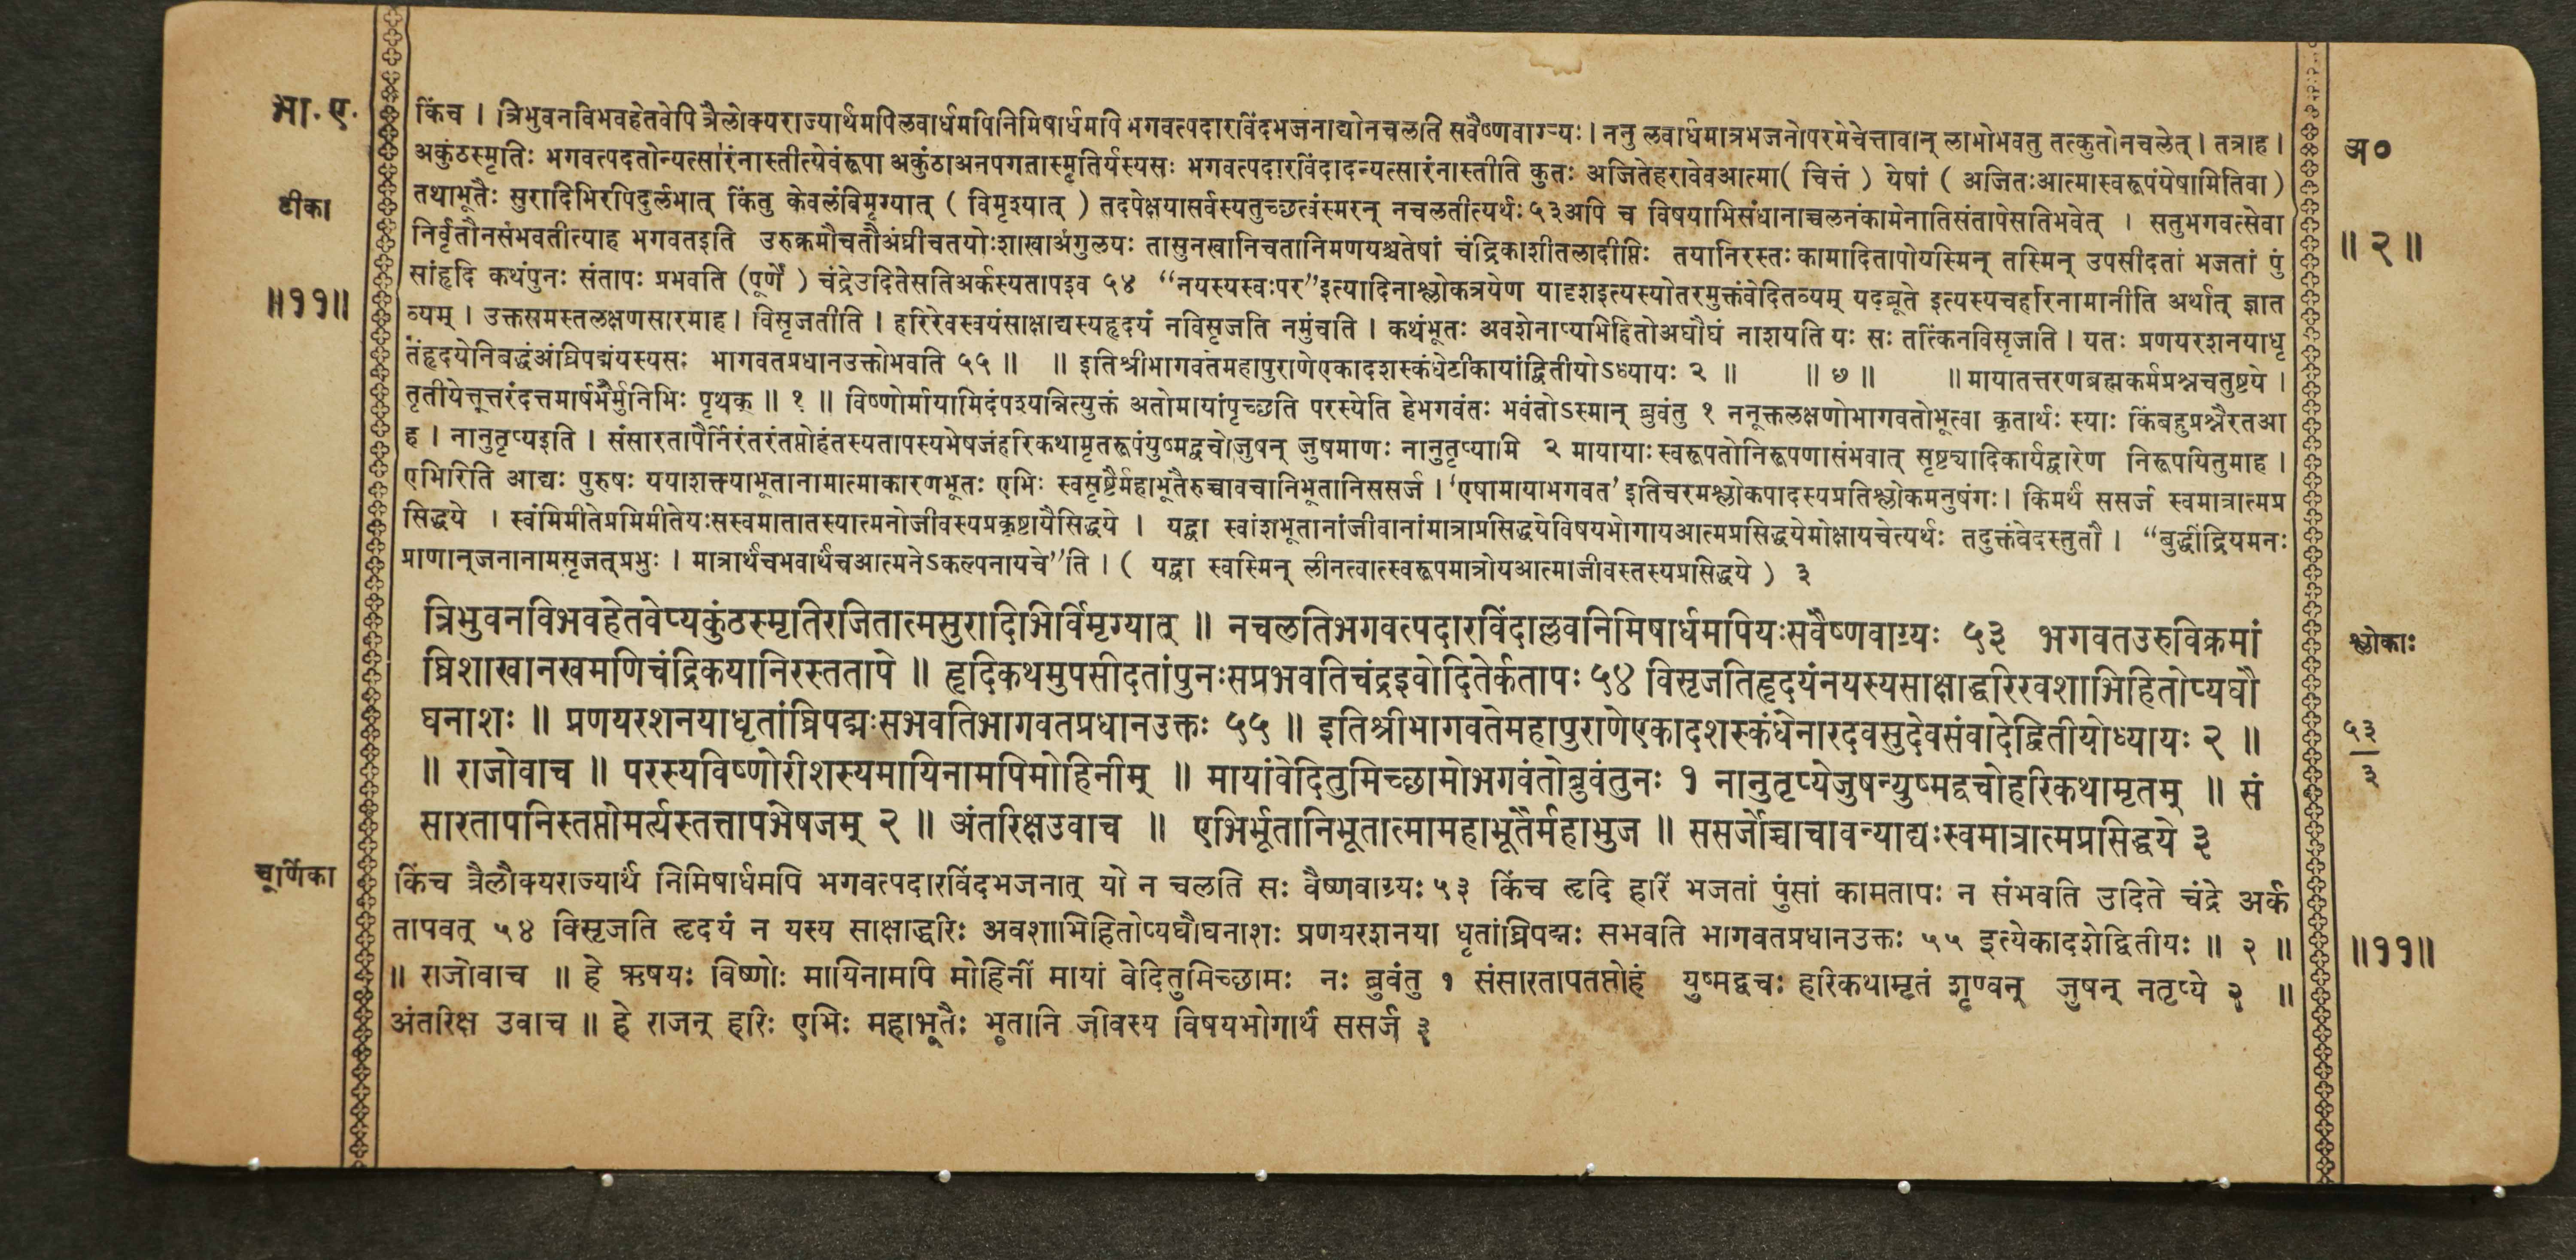 भा. ए.
टीका
॥११॥
किंच । त्रिभुवनविभवहेतवेपि त्रैलोक्यराज्यार्थमपिलवार्धमपिनिमिषार्धमपि भगवत्पदारविंदभजनाद्योनचलति सवैष्णवाग्र्यः । ननु लवार्धमात्रभजनोपरमेचेत्तावान् लाभोभवतु तत्कुतोनचलेत् । तत्राह ।
अकुंठस्मृतिः भगवत्पदतोन्यत्सारंनास्तीत्येवंरूपा अकुंठाअनपगतास्मृतिर्यस्यसः भगवत्पदारविंदादन्यत्सारंनास्तीति कुतः अजितेहरावेवआत्मा( चित्तं ) येषां ( अजितःआत्मास्वरूपंयेषामितिवा )
तथाभूतैः सुरादिभिरपिदुर्लभात् किंतु केवलंविमृग्यात् ( विमृश्यात् ) तदपेक्षयासर्वस्यतुच्छत्वंस्मरन् नचलतीत्यर्थः५३अपि च विषयाभिसंधानाच्चलनंकामेनातिसंतापेसतिभवेत् । सतुभगवत्सेवा
निर्वृतौनसंभवतीत्याह भगवतइति उरुक्रमौचतौअंघ्रीचतयोःशाखाअंगुलयः तासुनखानिचतानिमणयश्चतेषां चंद्रिकाशीतलादीप्तिः तयानिरस्तःकामादितापोयस्मिन् तस्मिन् उपसीदतां भजतां पुं
सांहृदि कथंपुनः संतापः प्रभवति (पूर्णे ) चंद्रेउदितेसतिअर्कस्यतापइव ५४ “नयस्यस्वःपर”इत्यादिनाश्लोकत्रयेण यादृशइत्यस्योतरमुक्तंवेदितव्यम् यद्ब्रूते इत्यस्यचहरिनामानीति अर्थात् ज्ञात
व्यम् । उक्तसमस्तलक्षणसारमाह । विसृजतीति । हरिरेवस्वयंसाक्षाद्यस्यहृदयं नविसृजति नमुंचति । कथंभूतः अवशेनाप्याभिहितोअघौघं नाशयति यः सः तत्किंनविसृजति । यतः प्रणयरशनयाधृ
तंहृदयेनिबद्धंअंघ्रिपद्मंयस्यसः भागवतप्रधानउक्तोभवति ५५ ॥ ॥ इतिश्रीभागवतेमहापुराणेएकादशस्कंधेटीकायांद्वितीयोऽध्यायः २ ॥ ॥ ७ ॥ ॥ मायातत्तरणब्रह्मकर्मप्रश्नचतुष्टये ।
तृतीयेत्तूत्तरंदत्तमार्षभैर्मुनिभिः पृथक् ॥ १ ॥ विष्णोर्मायामिदंपश्यन्नित्युक्तं अतोमायांपृच्छति परस्येति हेभगवंतः भवंतोऽस्मान् ब्रुवंतु १ ननूक्तलक्षणोभागवतोभूत्वा कृतार्थः स्याः किंबहुप्रश्नैरतआ
ह । नानुतृप्यइति । संसारतापैर्निरंतरंतप्तोहंतस्यतापस्यभेषजंहरिकथामृतरूपंयुष्मद्वचोजुषन् जुषमाणः नानुतृप्यामि २ मायायाः स्वरूपतोनिरूपणासंभवात् सृष्ट्यादिकार्यद्वारेण निरूपयितुमाह ।
एभिरिति आद्यः पुरुषः ययाशक्त्याभूतानामात्माकारणभूतः एभिः स्वसृष्टैर्महाभूतैरुच्चावचानिभूतानिससर्ज । ‘एषामायाभगवत’ इतिचरमश्लोकपादस्यप्रतिश्लोकमनुषंगः । किमर्थं ससर्ज स्वमात्रात्मप्र
सिद्धये । स्वंमिमीतेप्रमिमीतेयःसस्वमातातस्यात्मनोजीवस्यप्रकृष्टायैसिद्धये । यद्वा स्वांशभूतानांजीवानांमात्राप्रसिद्धयेविषयभोगायआत्मप्रसिद्धयेमोक्षायचेत्यर्थः तदुक्तंवेदस्तुतौ । “बुद्धींद्रियमनः
प्राणान्जनानामसृजत्प्रभुः । मात्रार्थंचभवार्थंचआत्मनेऽकल्पनायचे”ति । ( यद्वा स्वस्मिन् लीनत्वात्स्वरूपमात्रोयआत्माजीवस्तस्यप्रसिद्धये ) ३
त्रिभुवनविभवहेतवेप्यकुंठस्मृतिरजितात्मसुरादिभिर्विमृग्यात् ॥ नचलतिभगवत्पदारविंदाल्लवनिमिषार्धमपियःसवैष्णवाग्र्यः ५३ भगवतउरुविक्रमां
घ्रिशाखानखमणिचंद्रिकयानिरस्ततापे ॥ हृदिकथमुपसीदतांपुनःसप्रभवतिचंद्रइवोदितेर्कतापः ५४ विसृजतिहृदयंनयस्यसाक्षाद्धरिरवशाभिहितोप्यघौ
घनाशः ॥ प्रणयरशनयाधृतांघ्रिपद्मःसभवतिभागवतप्रधानउक्तः ५५ ॥ इतिश्रीभागवतेमहापुराणेएकादशस्कंधेनारदवसुदेवसंवादेद्वितीयोध्यायः २ ॥
॥ राजोवाच ॥ परस्यविष्णोरीशस्यमायिनामपिमोहिनीम् ॥ मायांवेदितुमिच्छामोभगवंतोब्रुवंतुनः १ नानुतृप्येजुषन्युष्मद्वचोहरिकथामृतम् ॥ सं
सारतापनिस्तप्तोमर्त्यस्तत्तापभेषजम् २ ॥ अंतरिक्षउवाच ॥ एभिर्भूतानिभूतात्मामहाभूतैर्महाभुज ॥ ससर्जोच्चाचावन्याद्यःस्वमात्रात्मप्रसिद्धये ३
चूर्णिका
किंच त्रैलौक्यराज्यार्थं निमिषार्धमपि भगवत्पदारविंदभजनात् यो न चलति सः वैष्णवाग्र्यः ५३ किंच हृदि हरिं भजतां पुंसां कामतापः न संभवति उदिते चंद्रे अर्क
तापवत् ५४ विसृजति हृदयं न यस्य साक्षाद्धरिः अवशाभिहितोप्यघौघनाशः प्रणयरशनया धृतांघ्रिपद्मः सभवति भागवतप्रधानउक्तः ५५ इत्येकादशेद्वितीयः ॥ २ ॥
॥ राजोवाच ॥ हे ऋषयः विष्णोः मायिनामपि मोहिनीं मायां वेदितुमिच्छामः नः ब्रुवंतु १ संसारतापतप्तोहं युष्मद्वचः हरिकथामृतं शृण्वन् जुषन् नतृप्ये २ ॥
अंतरिक्ष उवाच ॥ हे राजन् हरिः एभिः महाभूतैः भूतानि जीवस्य विषयभोगार्थं ससर्ज ३
अ०
॥ २ ॥
श्लोकाः
५३
३
॥११॥